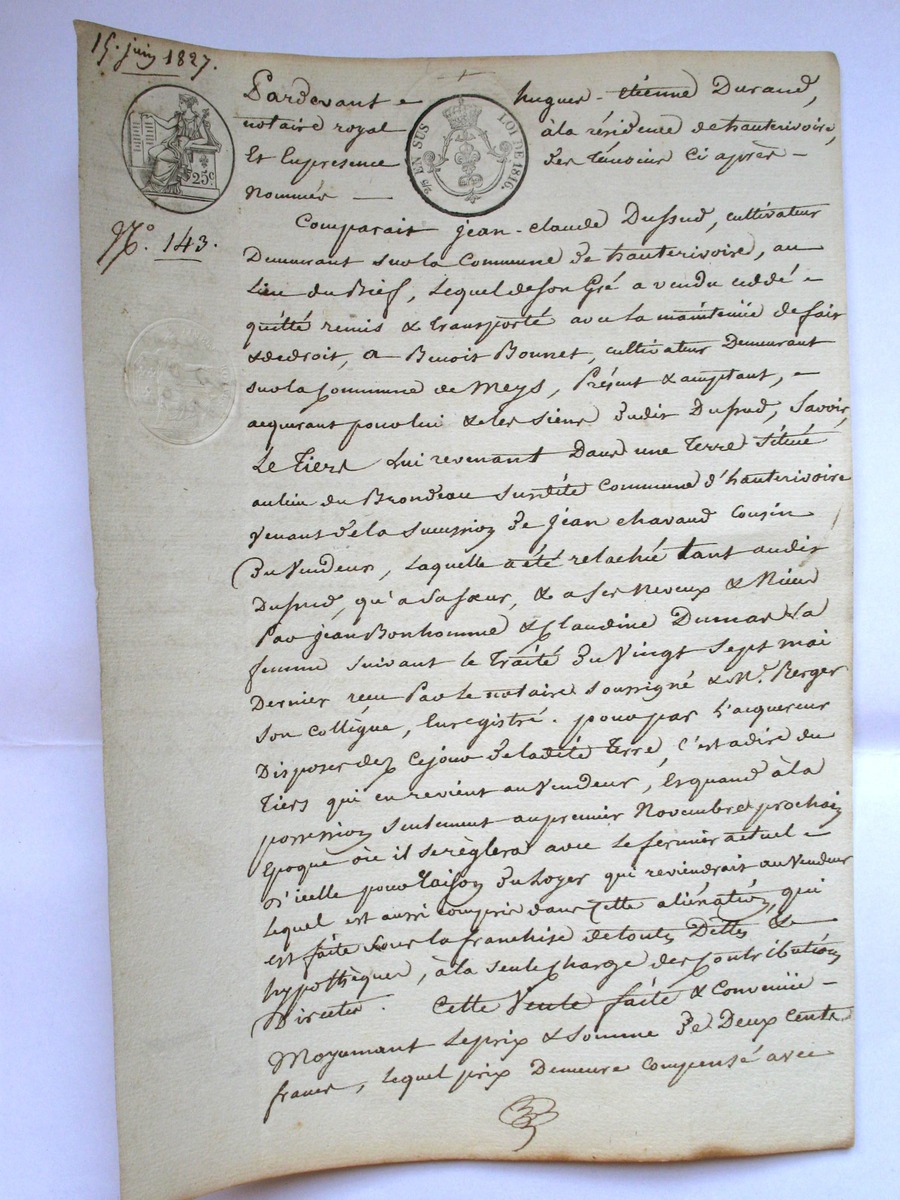 15. juin 1827.
Pardevant hugues-étienne Durand,
notaire royal à la résidence de hauterivoire,
Et En presence des témoins Ci après
Nommés
25c.
25 EN SUS LOI DE 1816.
N.o 143.
Comparait jean-claude Dussud, cultivateur
Demeurant sur la Commune de hauterivoire, au
Lieu du Bief, Lequel de son Gré a vendu cédé
quitté remis & transporté avec la maintenüe de fait
& de droit, a Benoit Bonnet, cultivateur Demeurant
sur la Commune de Meys, Présent & acceptant,
acquerant pour lui & les siens dudit Dussud, Savoir,
Le Tiers Lui revenant Dans une Terre située
au lieu du Brondeau susdite Commune d'hauterivoire
Venant de la succession de jean chavaud cousin
du Vendeur, Laquelle a été relachée tant audit
Dussud, qu'a sa soeur, & a ses Neveux & Nieces
Par jean Bonhomme & Claudine Dumas sa
femme suivant le Traité du Vingt sept mai
Dernier recu Par le notaire soussigné & M.e Berger
son Collègue, Enregistré. pour par L'acquereur
Disposer dez Ce jour de la dite Terre, C'est a dire du
Tiers qui en revient au Vendeur, Et quand à la
possession seulement au premier Novembre prochain
Epoque où il se règlera avec Le fermier actuel
d'icelle pour raison du Loyer qui reviendrait au Vendeur
Lequel est aussi compris dans Cette aliénation, qui
est faite sous la franchise de toutes Dettes &
hypothèques, à la seule charge des Contributions
Directes. Cette Vente faite & Convenüe
Moyennant Le prix & somme de Deux Cents
francs, lequel prix Demeure compensé avec